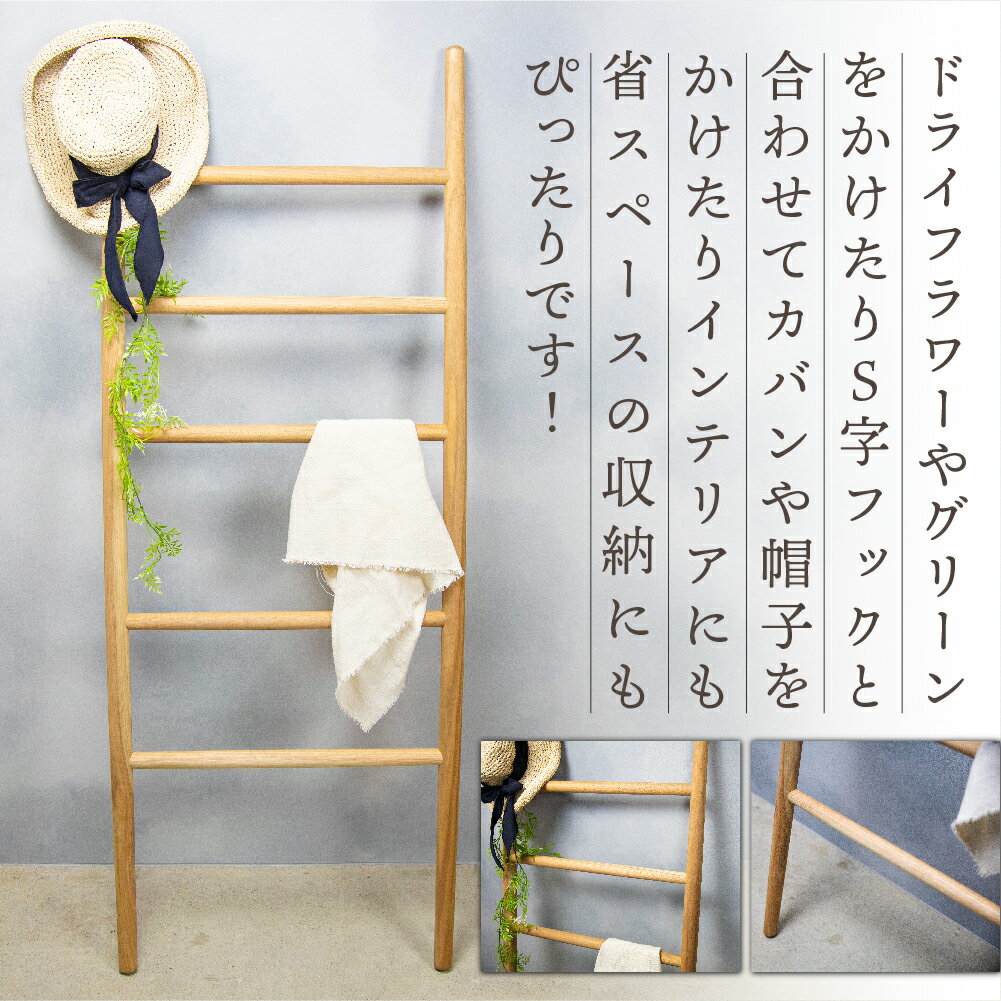 ドライフラワーやグリーン
をかけたりS字フックと
合わせてカバンや帽子を
かけたりインテリアにも
省スペースの収納にも
ぴったりです！